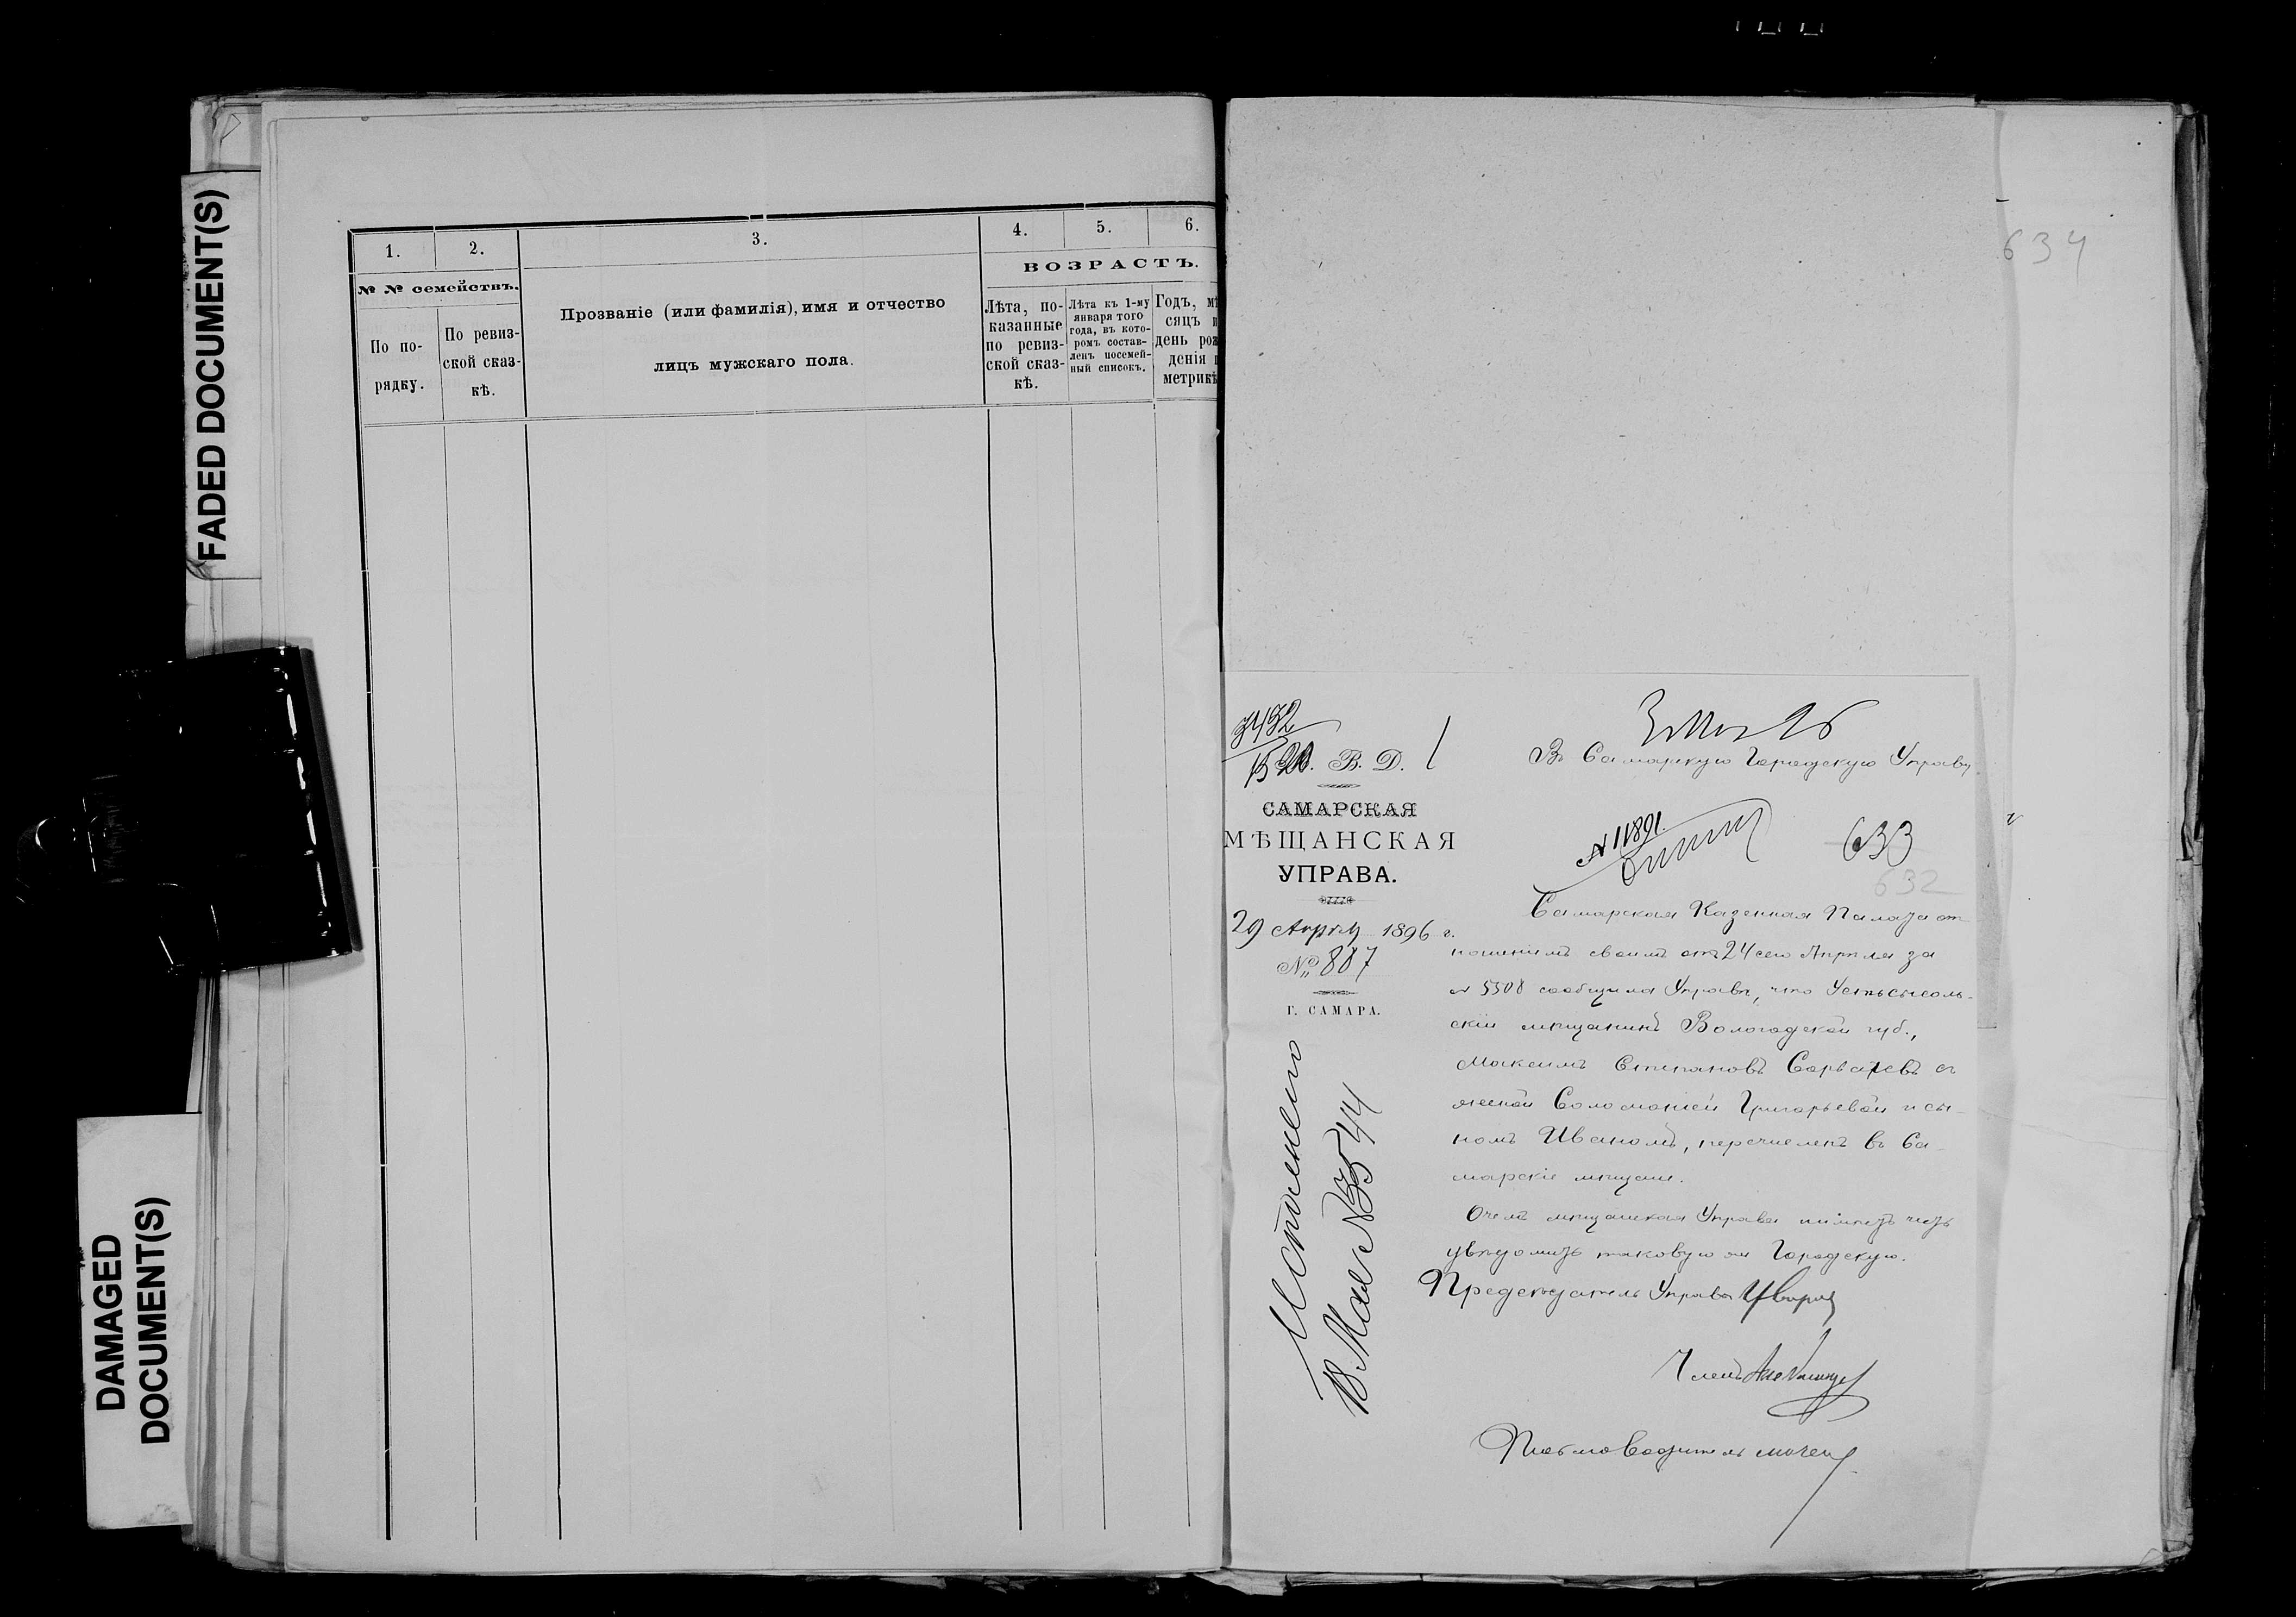 FADED DOCUMENT(S)
DAMAGED
DOCUMENT(S)
1.
2.
3.
4.
5.
6.
№ № семействъ.
По по-
рядку.
По ревиз-
ской сказ-
кѣ.
Прозваніе (или фамилія), имя и отчество
лицъ мужскаго пола.
ВОЗРАСТЪ.
Лѣта, по-
казанные
по ревиз-
ской сказ-
кѣ.
Лѣта къ 1-му
января того
года, въ кото-
ромъ состав-
ленъ посемей-
ный списокъ.
Годъ, мѣ
сяцъ и
день рож
денія п
метрикѣ
634
3432
В. Д.
САМАРСКАЯ
МѢЩАНСКАЯ
УПРАВА.
29 Апрѣля 1896 г.
№ 887
Г. САМАРА.
Исполнено
18 Мая № 3544
Въ Самарскую Городскую Управу
№ 11891
633
632
Самарская Казенная Палата от-
ношеніемъ своимъ отъ 24 сего Апрѣля за
№ 5508 сообщила Управѣ, что Устьсысоль-
скій мѣщанинъ Вологодской губ.,
Максимъ Степановъ Сорвачевъ съ
женой Соломоніей Григорьевой и сы-
номъ Иваномъ, перечисленъ въ Са-
марскіе мѣщане.
О чемъ мѣщанская Управа имѣетъ честь
увѣдомить таковую же Городскую.
Предсѣдатель Управы
Членъ
Письмоводитель